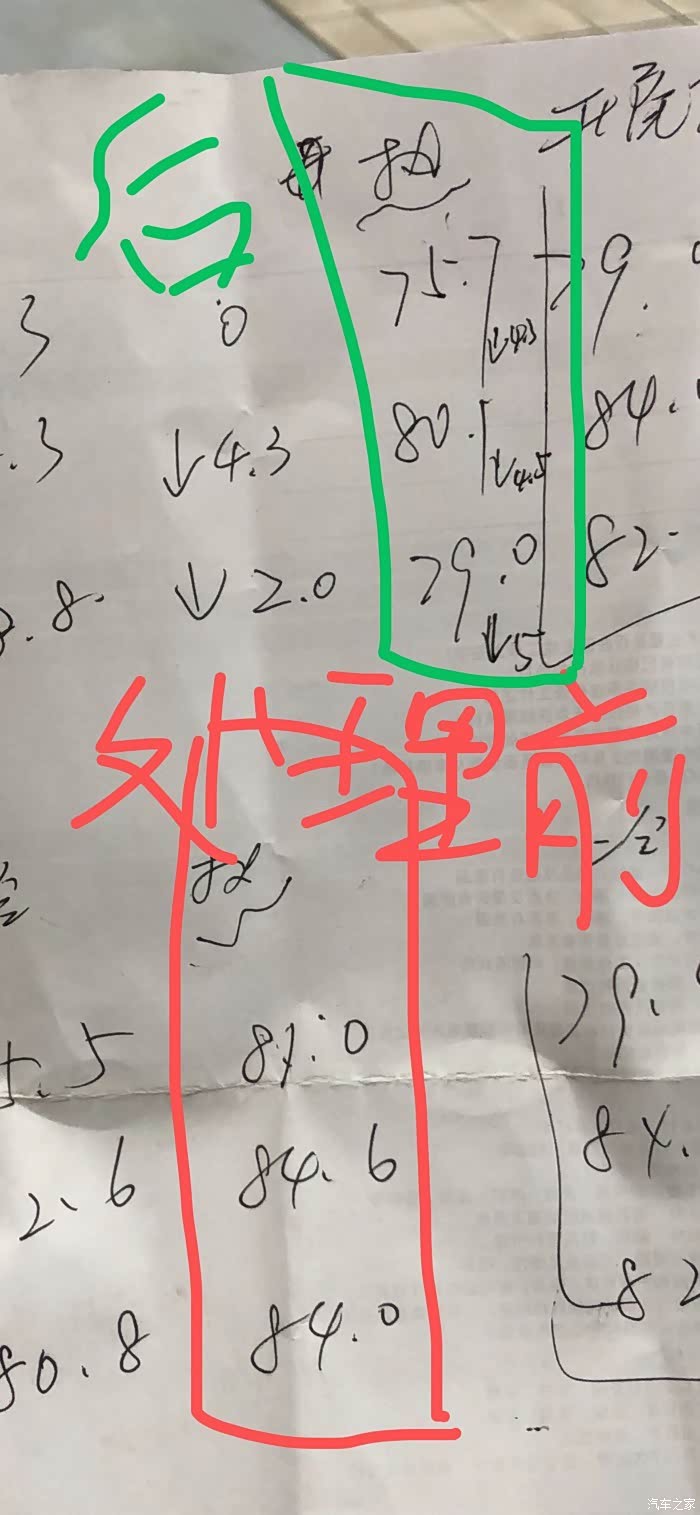 后
抽
3 0 75.7 ↓4.3 79.
.3 ↓4.3 80.1 ↓4.5 84.
3.8. ↓2.0 79.0 ↓5 82.
处理前
5.5 81.0 79.
2.6 84.6 84.
80.8 84.0 82
汽车之家